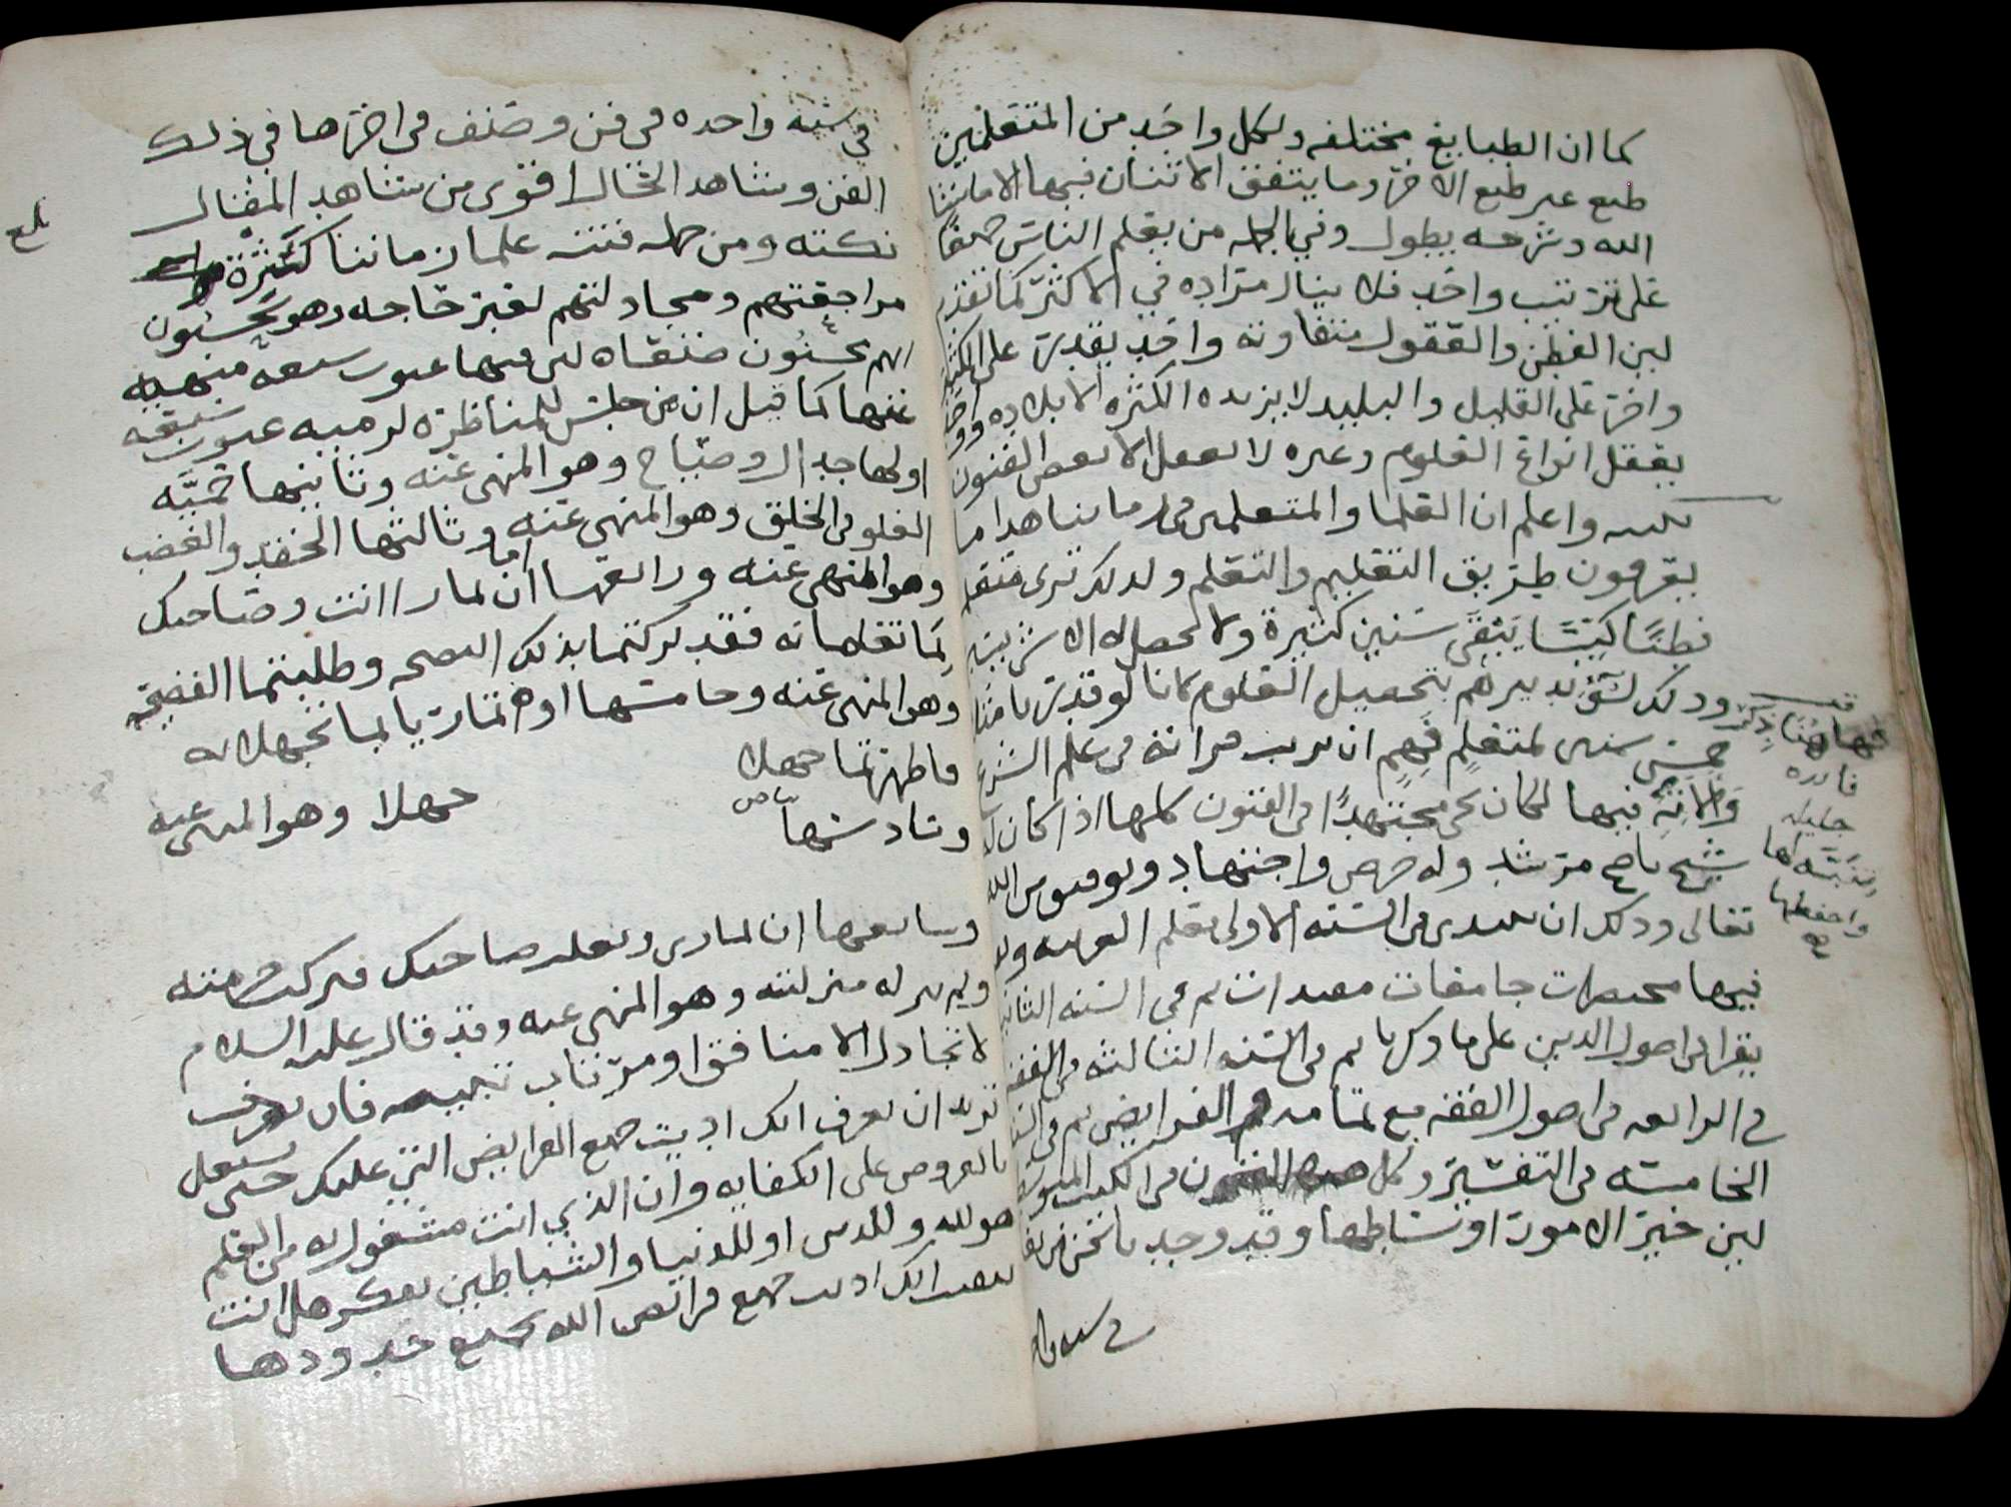 كما ان الطبايع مختلفه ولكل واحد من المتعلمين
طبع غير طبع الآخر وما يتفق الاثنان فيها الا ما شا
الله وشرحه يطول وفي الجمله من يعلم الناس جميعًا
على ترتيب واحد فلا ينال مراده في الاكثر كما تقدم
لين الفطن والعقول متفاوته واحد يقدر على الكثير
واخر على القليل والبليد لا يزيده الكثره الا بلاده وواحد
يعقل انواع العلوم وغيره لا يعقل الا بعض الفنون
واعلم ان العلما والمتعلمين في زماننا هذا ما
يعرفون طريق التعليم والتعلم ولذلك ترى متعلم
فطنًا كيّسًا يَبْقَى سنين كثيرة ولا يحصل له الا شي يسير
وذلك لسوّ تدبيرهم بتحصيل العلوم كانا لو قدرنا مثلا
خمس سنين لمتعلمٍ فَهِمٍ ان يرتب قرانته في علم الشرع
فيها لكان مجتهدًا في الفنون كلها اذا كان له
شيخ ناصح مرشد وله حرص واجتهاد وتوفيق من الله
تعالى وذلك ان يبتدي في السنه الاولى بتعلم العربيه
فيها مختصرات جامعات مفيدات ثم في السنه الثانيه
يقرا في اصول الدين على ما ذكرنا ثم في السنه الثالثه في الفقه
في الرابعه في اصول الفقه مع تمامه الفرايض ثم في السنه
الخامسه في التفسير وكل هذه الفنون في الكتب المتوسطه
لين خير الامور اوساطها وقد وجد نا نحن من يقرا
في سنه واحده
هاهنا ذكر
فايده
جليله
تنبّه لها
واحفظها
في سنه واحده في فن وصنف في اخرها في ذلك
الفن وشاهد الحال اقوى من شاهد المقال
نكته ومن جمله فتنة علما زماننا كَثْرة
مراجعتهم ومجادلتهم لغير حاجه وهو يحسبون
انهم يحسنُون صنعًا وليس فيها عيوب سبعه منهيه
عنها كما قيل ان من جلس للمناظره لزمه عيوب سبعه
اولها جدال وصياح وهو المنهي عنه وثانيها حميّه
الغلو في الخلق وهو المنهي عنه وثالثها الحقد والغضب
وهو المنهي عنه ورابعها اما ان تمارا انت وصاحبك
لِمَا تعلمانه فقد تركتما بذلك النصح وطلبتما الفضيحه
وهو المنهي عنه وخامسها او تماريا لما تجهلانه
فاظهرتما جهلا
وسادسها بياض جهلا وهو المنهي عنه
وسابعها ان تماري وتعلم صاحبك فتركت حرمته
ولم تر له منزلته وهو المنهي عنه وقد قال عليه السلام
لا تجادل الا منافق او مرتاب تنبيه فان
تريد ان تعرف انك اديت جميع الفرايض التي عليك حتى تشتغل
بالفروض على الكفايه وان الذي انت مشغول به من العلم
هو لله وللدين او للدنيا والشياطين تفكر هل انت
انك اديت جميع فرائض الله بجميع حدودها
بلغ